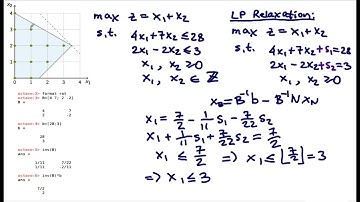 x₂
5
4
3
2
1
0
0 1 2 3 4 x₁
octave:2> format rat
octave:3> B=[4 7; 2 -2]
B =
4 7
2 -2
octave:4> b=[28;3]
b =
28
3
octave:5> inv(B)
ans =
1/11 7/22
1/11 -2/11
octave:6> inv(B)*b
ans =
7/2
2
max z = x₁+x₂
s.t. 4x₁+7x₂≤28
2x₁-2x₂≤3
x₁, x₂ ≥0
x₁, x₂ ∈ ℤ
LP Relaxation:
max z=x₁+x₂
s.t. 4x₁+7x₂+s₁=28
2x₁-2x₂+s₂=3
x₁, x₂ ≥0
x_B=B⁻¹b-B⁻¹N x_N
x₁=7/2-1/11 s₁-7/22 s₂
x₁+1/11 s₁+7/22 s₂=7/2
x₁ ≤ 7/2 ⇒ x₁≤⌊7/2⌋=3
⇒ x₁≤3